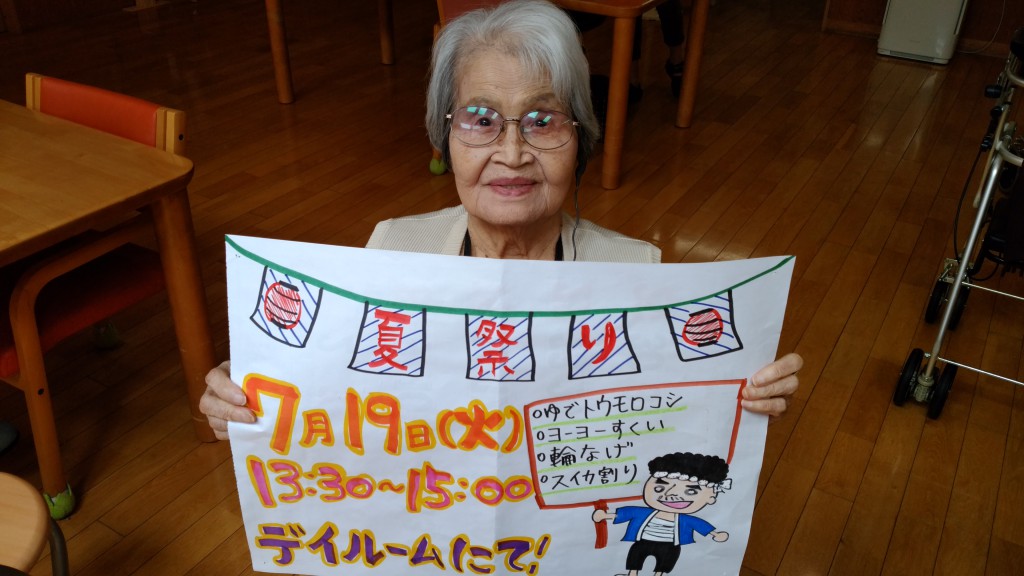 夏祭り
7月19日(火)
13:30~15:00
デイルームにて!
○ゆでトウモロコシ
○ヨーヨーすくい
○輪なげ
○スイカ割り